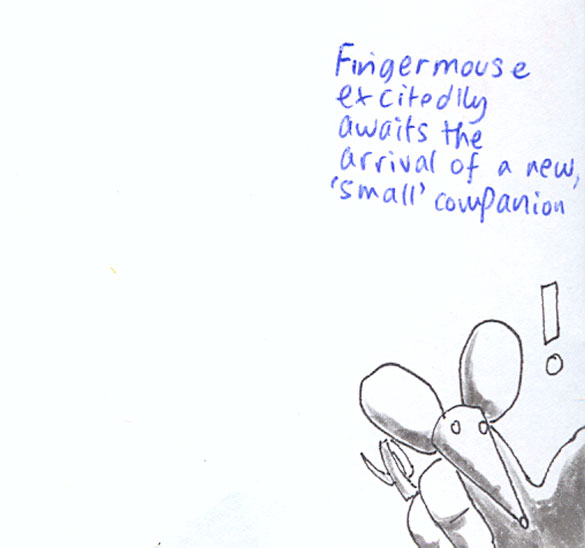 Fingermouse
excitedlly
awaits the
arrival of a new,
'small' companion
!